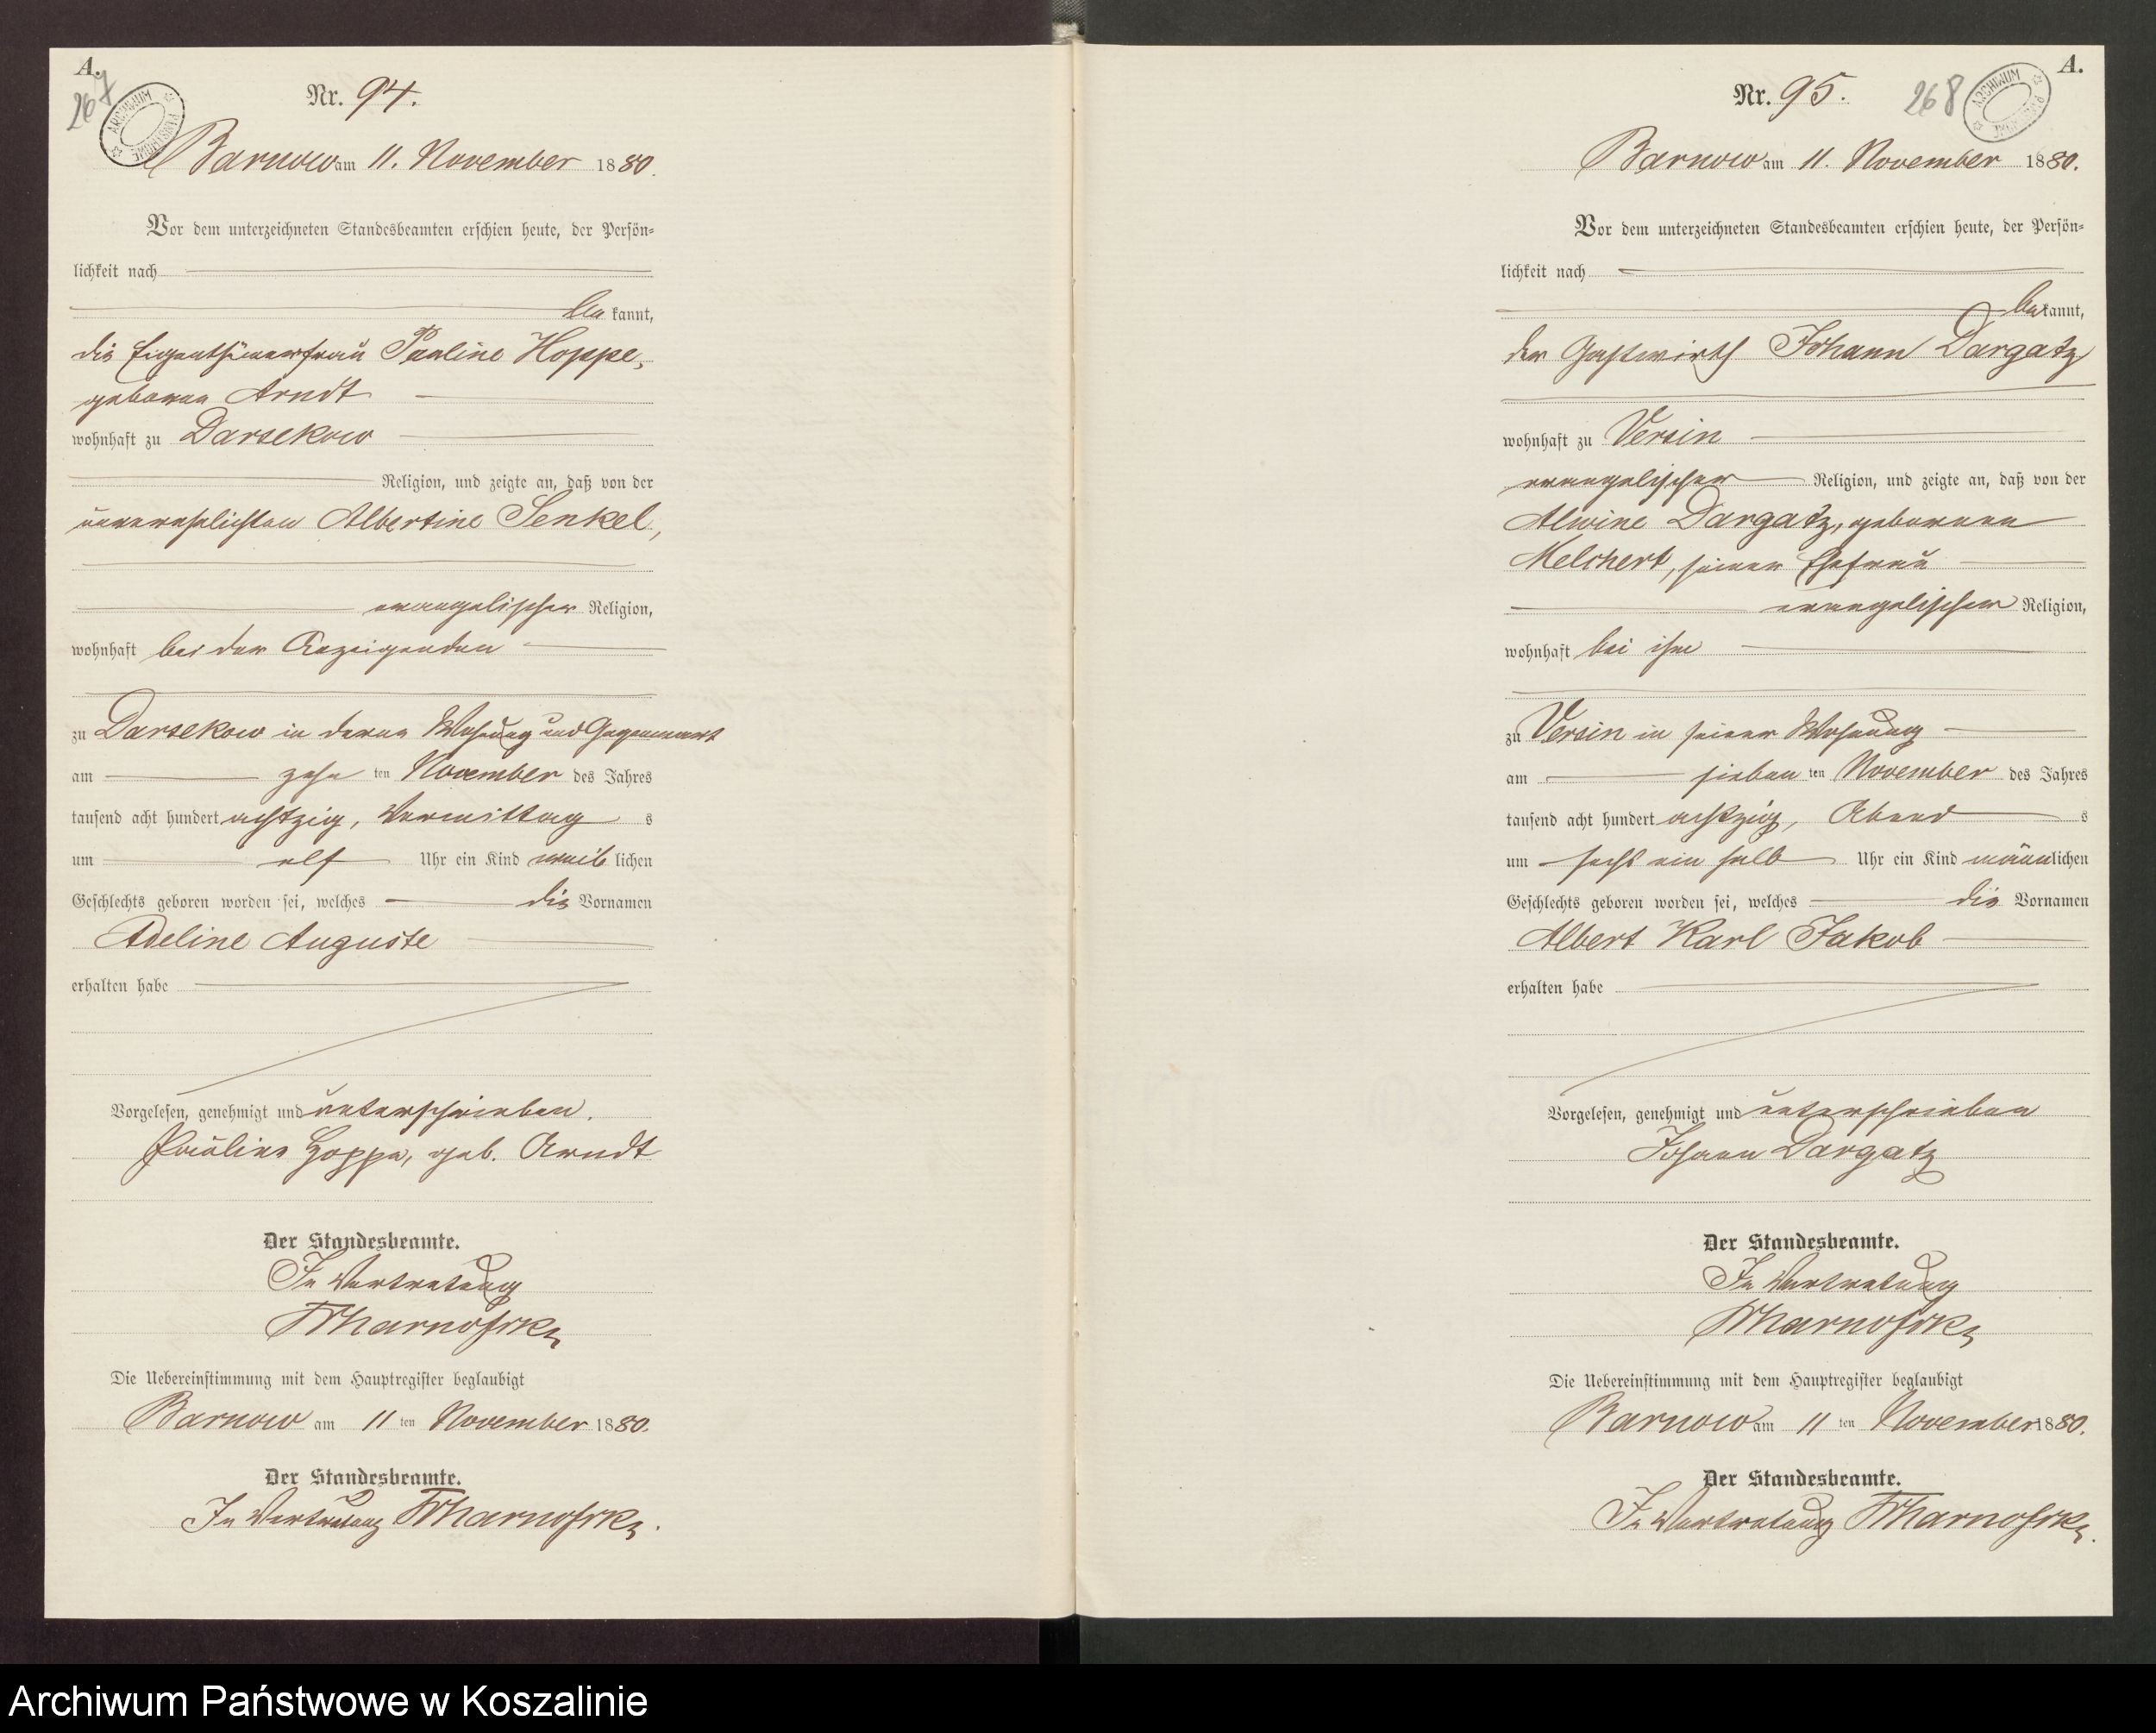 A.
267
ARCHIWUM PAŃSTWOWE
Nr. 94.
Barnow am 11. November 1880.
Vor dem unterzeichneten Standesbeamten erschien heute, der Persön-
lichkeit nach
be kannt,
die Eigenthümerfrau Pauline Hoppe,
geborne Arndt
wohnhaft zu Darsekow
Religion, und zeigte an, daß von der
unverehelichten Albertine Senkel,
evangelischer Religion,
wohnhaft bei der Anzeigenden
zu Darsekow in deren Wohnung und Gegenwart
am zehn ten November des Jahres
tausend acht hundert achtzig, Vormittag s
um elf Uhr ein Kind weib lichen
Geschlechts geboren worden sei, welches die Vornamen
Adeline Auguste
erhalten habe
Vorgelesen, genehmigt und unterschrieben.
Pauline Hoppe, geb. Arndt
Der Standesbeamte.
In Vertretung
Die Uebereinstimmung mit dem Hauptregister beglaubigt
Barnow am 11 ten November 1880.
Der Standesbeamte.
In Vertretung
A.
268
ARCHIWUM PAŃSTWOWE
Nr. 95.
Barnow am 11. November 1880.
Vor dem unterzeichneten Standesbeamten erschien heute, der Persön-
lichkeit nach
be kannt,
der Gastwirth Johann Dargatz
wohnhaft zu Versin
evangelischer Religion, und zeigte an, daß von der
Alwine Dargatz, geborenen
Melchert, seiner Ehefrau
evangelischer Religion,
wohnhaft bei ihm
zu Versin in seiner Wohnung
am sieben ten November des Jahres
tausend acht hundert achtzig, Abend s
um sechs ein halb Uhr ein Kind männ lichen
Geschlechts geboren worden sei, welches die Vornamen
Albert Karl Jakob
erhalten habe
Vorgelesen, genehmigt und unterschrieben
Johann Dargatz
Der Standesbeamte.
In Vertretung
Die Uebereinstimmung mit dem Hauptregister beglaubigt
Barnow am 11 ten November 1880.
Der Standesbeamte.
In Vertretung
Archiwum Państwowe w Koszalinie